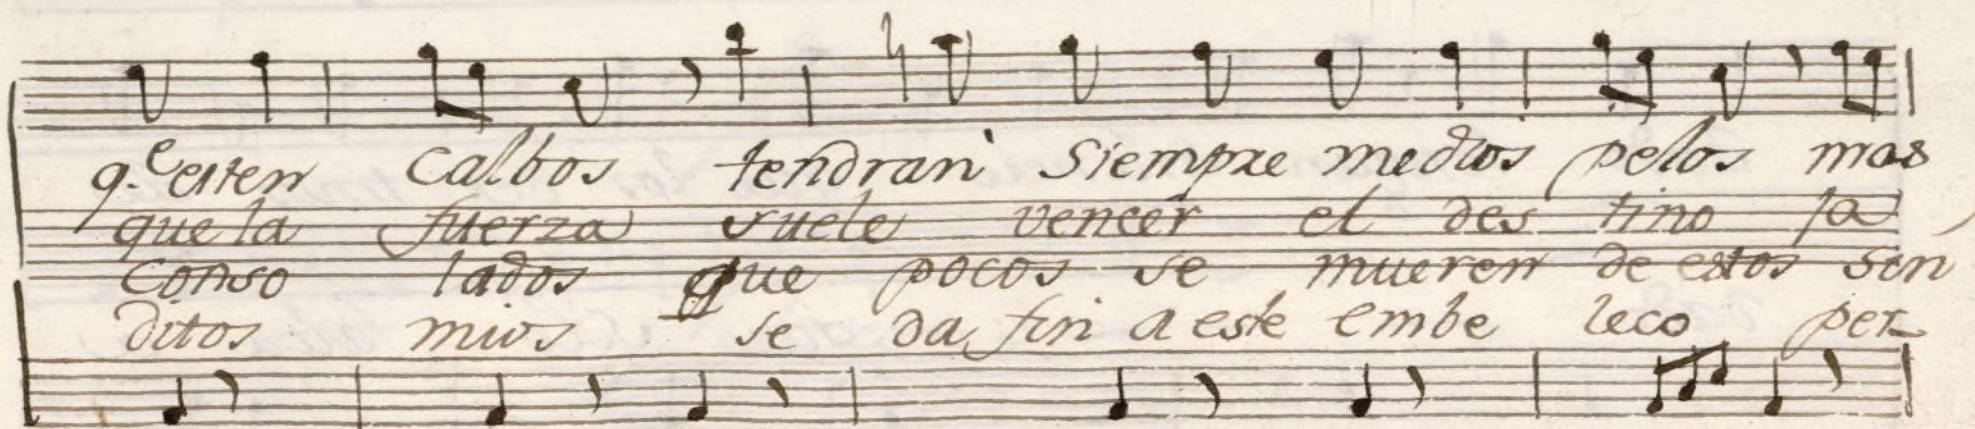 q.e esten Calbos tendran Siempre medios pelos mas
que la fuerza suele vencer el des tino ja
Conso lados que pocos se mueren de estos sin
ditos mios se da fin a este embe leco per